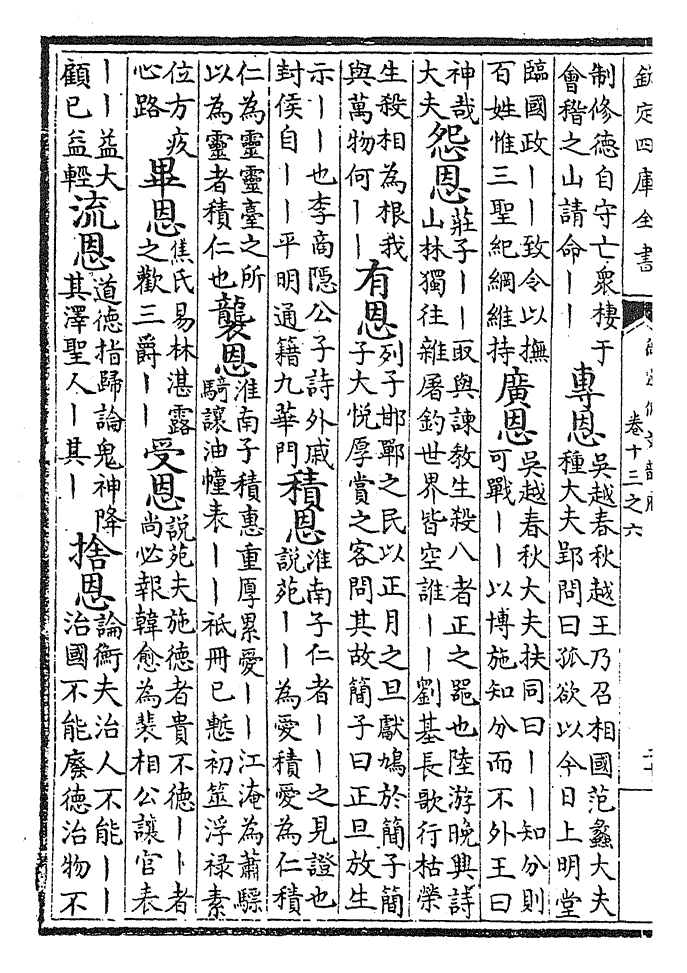 欽定四庫全書
卷十三之六
制修德自守亡衆棲于
會稽之山請命｜｜
專恩
吳越春秋越王乃召相國范蠡大夫
種大夫郢問曰孤欲以今日上明堂
臨國政｜｜致令以撫
百姓惟三聖紀綱維持
廣恩
吳越春秋大夫扶同曰｜｜知分則
可戰｜｜以博施知分而不外王曰
神哉
大夫
怨恩
莊子｜｜取與諫教生殺八者正之噐也陸游晚興詩
山林獨往雜屠釣世界皆空誰｜｜劉基長歌行枯榮
生殺相為根我
與萬物何｜｜
有恩
列子邯鄲之民以正月之旦獻鳩於簡子簡
子大悅厚賞之客問其故簡子曰正旦放生
示｜｜也李商隱公子詩外戚
封侯自｜｜平明通籍九華門
積恩
淮南子仁者｜｜之見證也
說苑｜｜為愛積愛為仁積
仁為靈靈臺之所
以為靈者積仁也
襲恩
淮南子積惠重厚累愛｜｜江淹為蕭驃
騎讓油幢表｜｜祗冊已慙初筮浮祿素
位方疚
心路
畢恩
焦氏易林湛露
之歡三爵｜｜
受恩
說苑夫施德者貴不德｜｜者
尚必報韓愈為裴相公讓官表
｜｜益大
顧已益輕
流恩
道德指歸論鬼神降
其澤聖人｜｜其｜
捨恩
論衡夫治人不能｜｜
治國不能廢德治物不